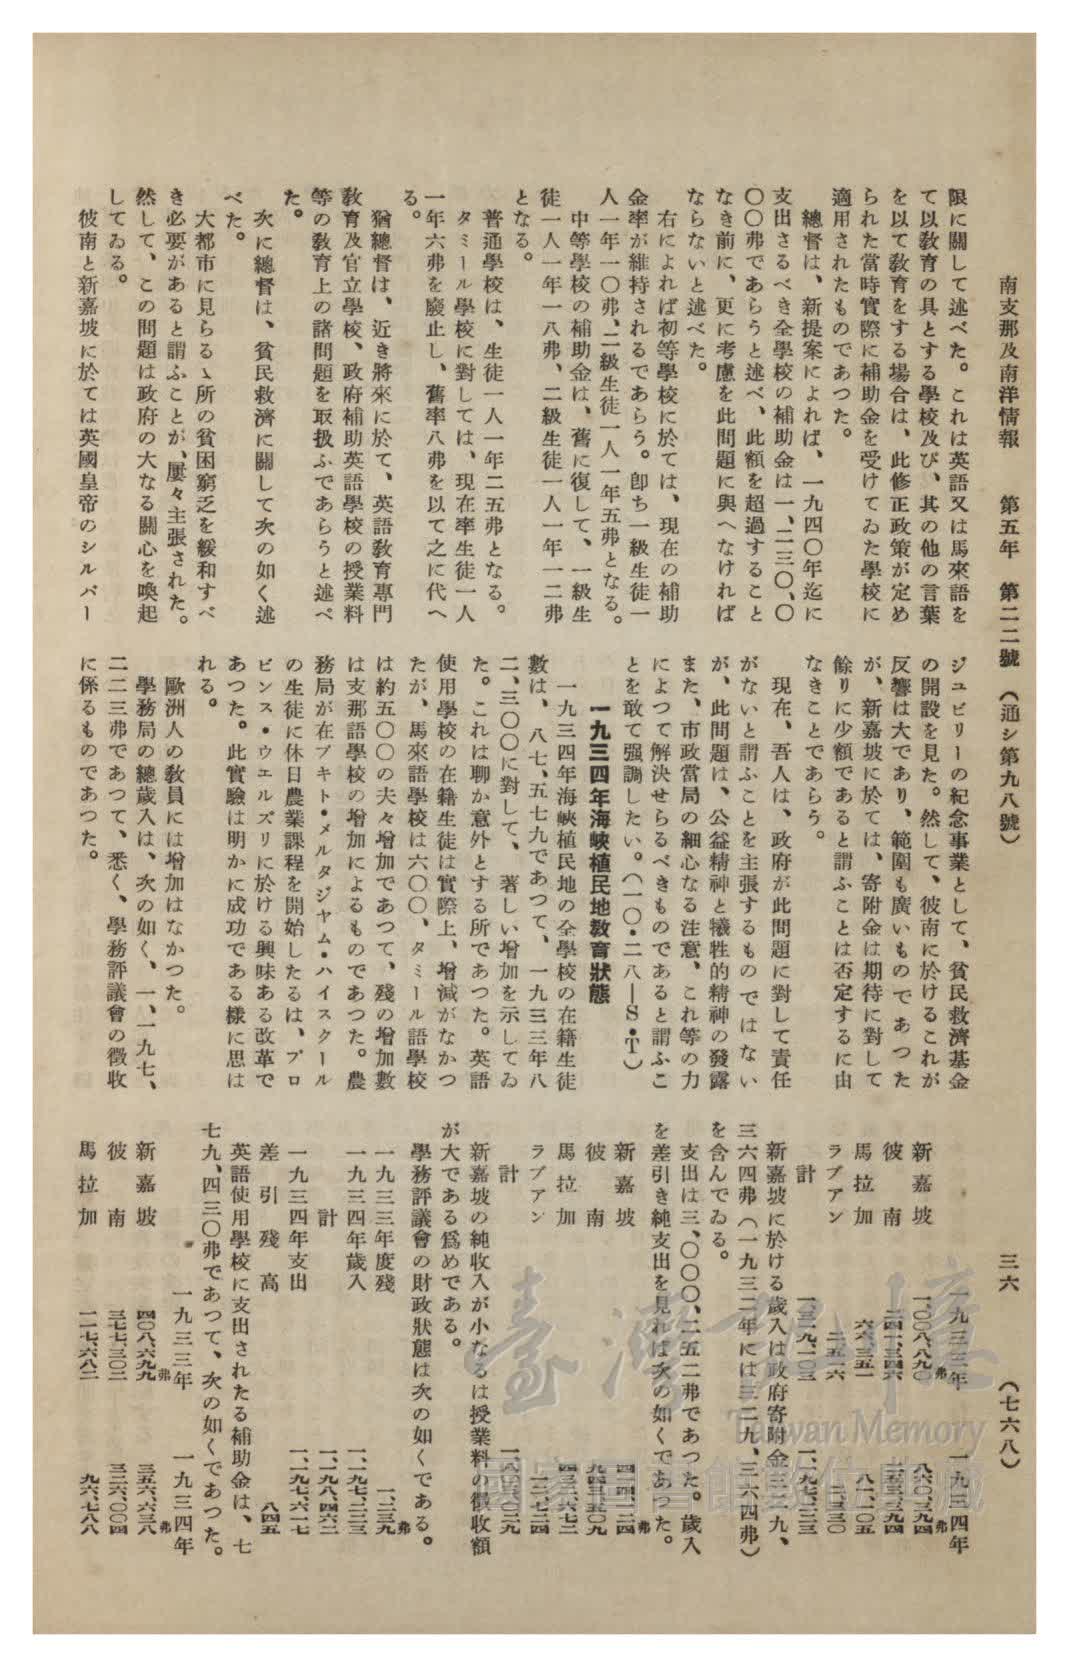 南支那及南洋情報　第五年　第二二號　（通シ第九八號）　三六　（七六八）
限に關して述べた。これは英語又は馬來語を
て以敎育の具とする學校及び、其の他の言葉
を以て敎育をする場合は、此修正政策が定め
られた當時實際に補助金を受けてゐた學校に
適用されたものであつた。
總督は、新提案によれば、一九四〇年迄に
支出さるべき全學校の補助金は一、二三〇、〇
〇〇弗であらうと述べ、此額を超過すること
なき前に、更に考慮を此問題に與へなければ
ならないと述べた。
右によれば初等學校に於ては、現在の補助
金率が維持されるであらう。卽ち一級生徒一
人一年一〇弗、二級生徒一人一年五弗となる。
中等學校の補助金は、舊に復して、一級生
徒一人一年一八弗、二級生徒一人一年一二弗
となる。
普通學校は、生徒一人一年二五弗となる。
タミール學校に對しては、現在率生徒一人
一年六弗を廢止し、舊率八弗を以て之に代へ
る。
猶總督は、近き將來に於て、英語敎育專門
敎育及官立學校、政府補助英語學校の授業料
等の敎育上の諸問題を取扱ふであらうと述べ
た。
次に總督は、貧民救濟に關して次の如く述
べた。
大都市に見らるゝ所の貧困窮乏を緩和すべ
き必要があると謂ふことが、屢々主張された。
然して、この問題は政府の大なる關心を喚起
してゐる。
彼南と新嘉坡に於ては英國皇帝のシルバー
ジュビリーの紀念事業として、貧民救濟基金
の開設を見た。然して、彼南に於けるこれが
反響は大であり、範圍も廣いものであつた
が、新嘉坡に於ては、寄附金は期待に對して
餘りに少額であると謂ふことは否定するに由
なきことであらう。
現在、吾人は、政府が此問題に對して責任
がないと謂ふことを主張するものではない
が、此問題は、公益精神と犧牲的精神の發露
また、市政當局の細心なる注意、これ等の力
によつて解決せらるべきものであると謂ふこ
とを敢て强調したい。（一〇・二八―S・T）
一九三四年海峽植民地敎育狀態
一九三四年海峽植民地の全學校の在籍生徒
數は、八七、五七九であつて、一九三三年八
二、三〇〇に對して、著しい增加を示してゐ
た。これは聊か意外とする所であつた。英語
使用學校の在籍生徒は實際上、增減がなかつ
たが、馬來語學校は六〇〇、タミール語學校
は約五〇〇の夫々增加であつて、殘の增加數
は支那語學校の增加によるものであつた。農
務局が在ブキト・メルタジヤム・ハイスクール
の生徒に休日農業課程を開始したるは、プロ
ビンス・ウエルズリに於ける興味ある改革で
あつた。此實驗は明かに成功である樣に思は
れる。
歐洲人の敎員には增加はなかつた。
學務局の總歲入は、次の如く、一、一九七、
二二三弗であつて、悉く、學務評議會の徵收
に係るものであつた。
一九三三年　一九三四年
新嘉坡　一、〇〇八、八九〇弗　八六〇、三九四弗
彼南　二四一、三四六
馬拉加　六六、三五一　八一、一〇五
ラブアン　二、五一六　二、三三〇
計　一、三一九、一〇三　一、一九七、二二三
新嘉坡に於ける歲入は政府寄附金三二九、
三六四弗（一九三三年には三二九、三六四弗）
を含んでゐる。
支出は三、〇〇〇、二五二弗であつた。歲入
を差引き純支出を見れば次の如くであつた。
新嘉坡
彼南
馬拉加
ラブアン
計
新嘉坡の純收入が小なるは授業料の徵收額
が大である爲めである。
學務評議會の財政狀態は次の如くである。
一九三三年度殘　一、二三九弗
一九三四年歲入　一、一九七、二二三
計　一、一九八、四六二
一九三四年支出　一、一九七、六一七
差引殘高　八四五
英語使用學校に支出されたる補助金は、七
七九、四三〇弗であつて、次の如くであつた。
一九三三年　一九三四年
新嘉坡　四〇八、六九九弗　三五六、六三八弗
彼南　三七七、三〇二　三二六、〇〇四
馬拉加　一一七、六八二　九六、七八八
臺灣記憶
Taiwan Memory
國家圖書館數位典藏